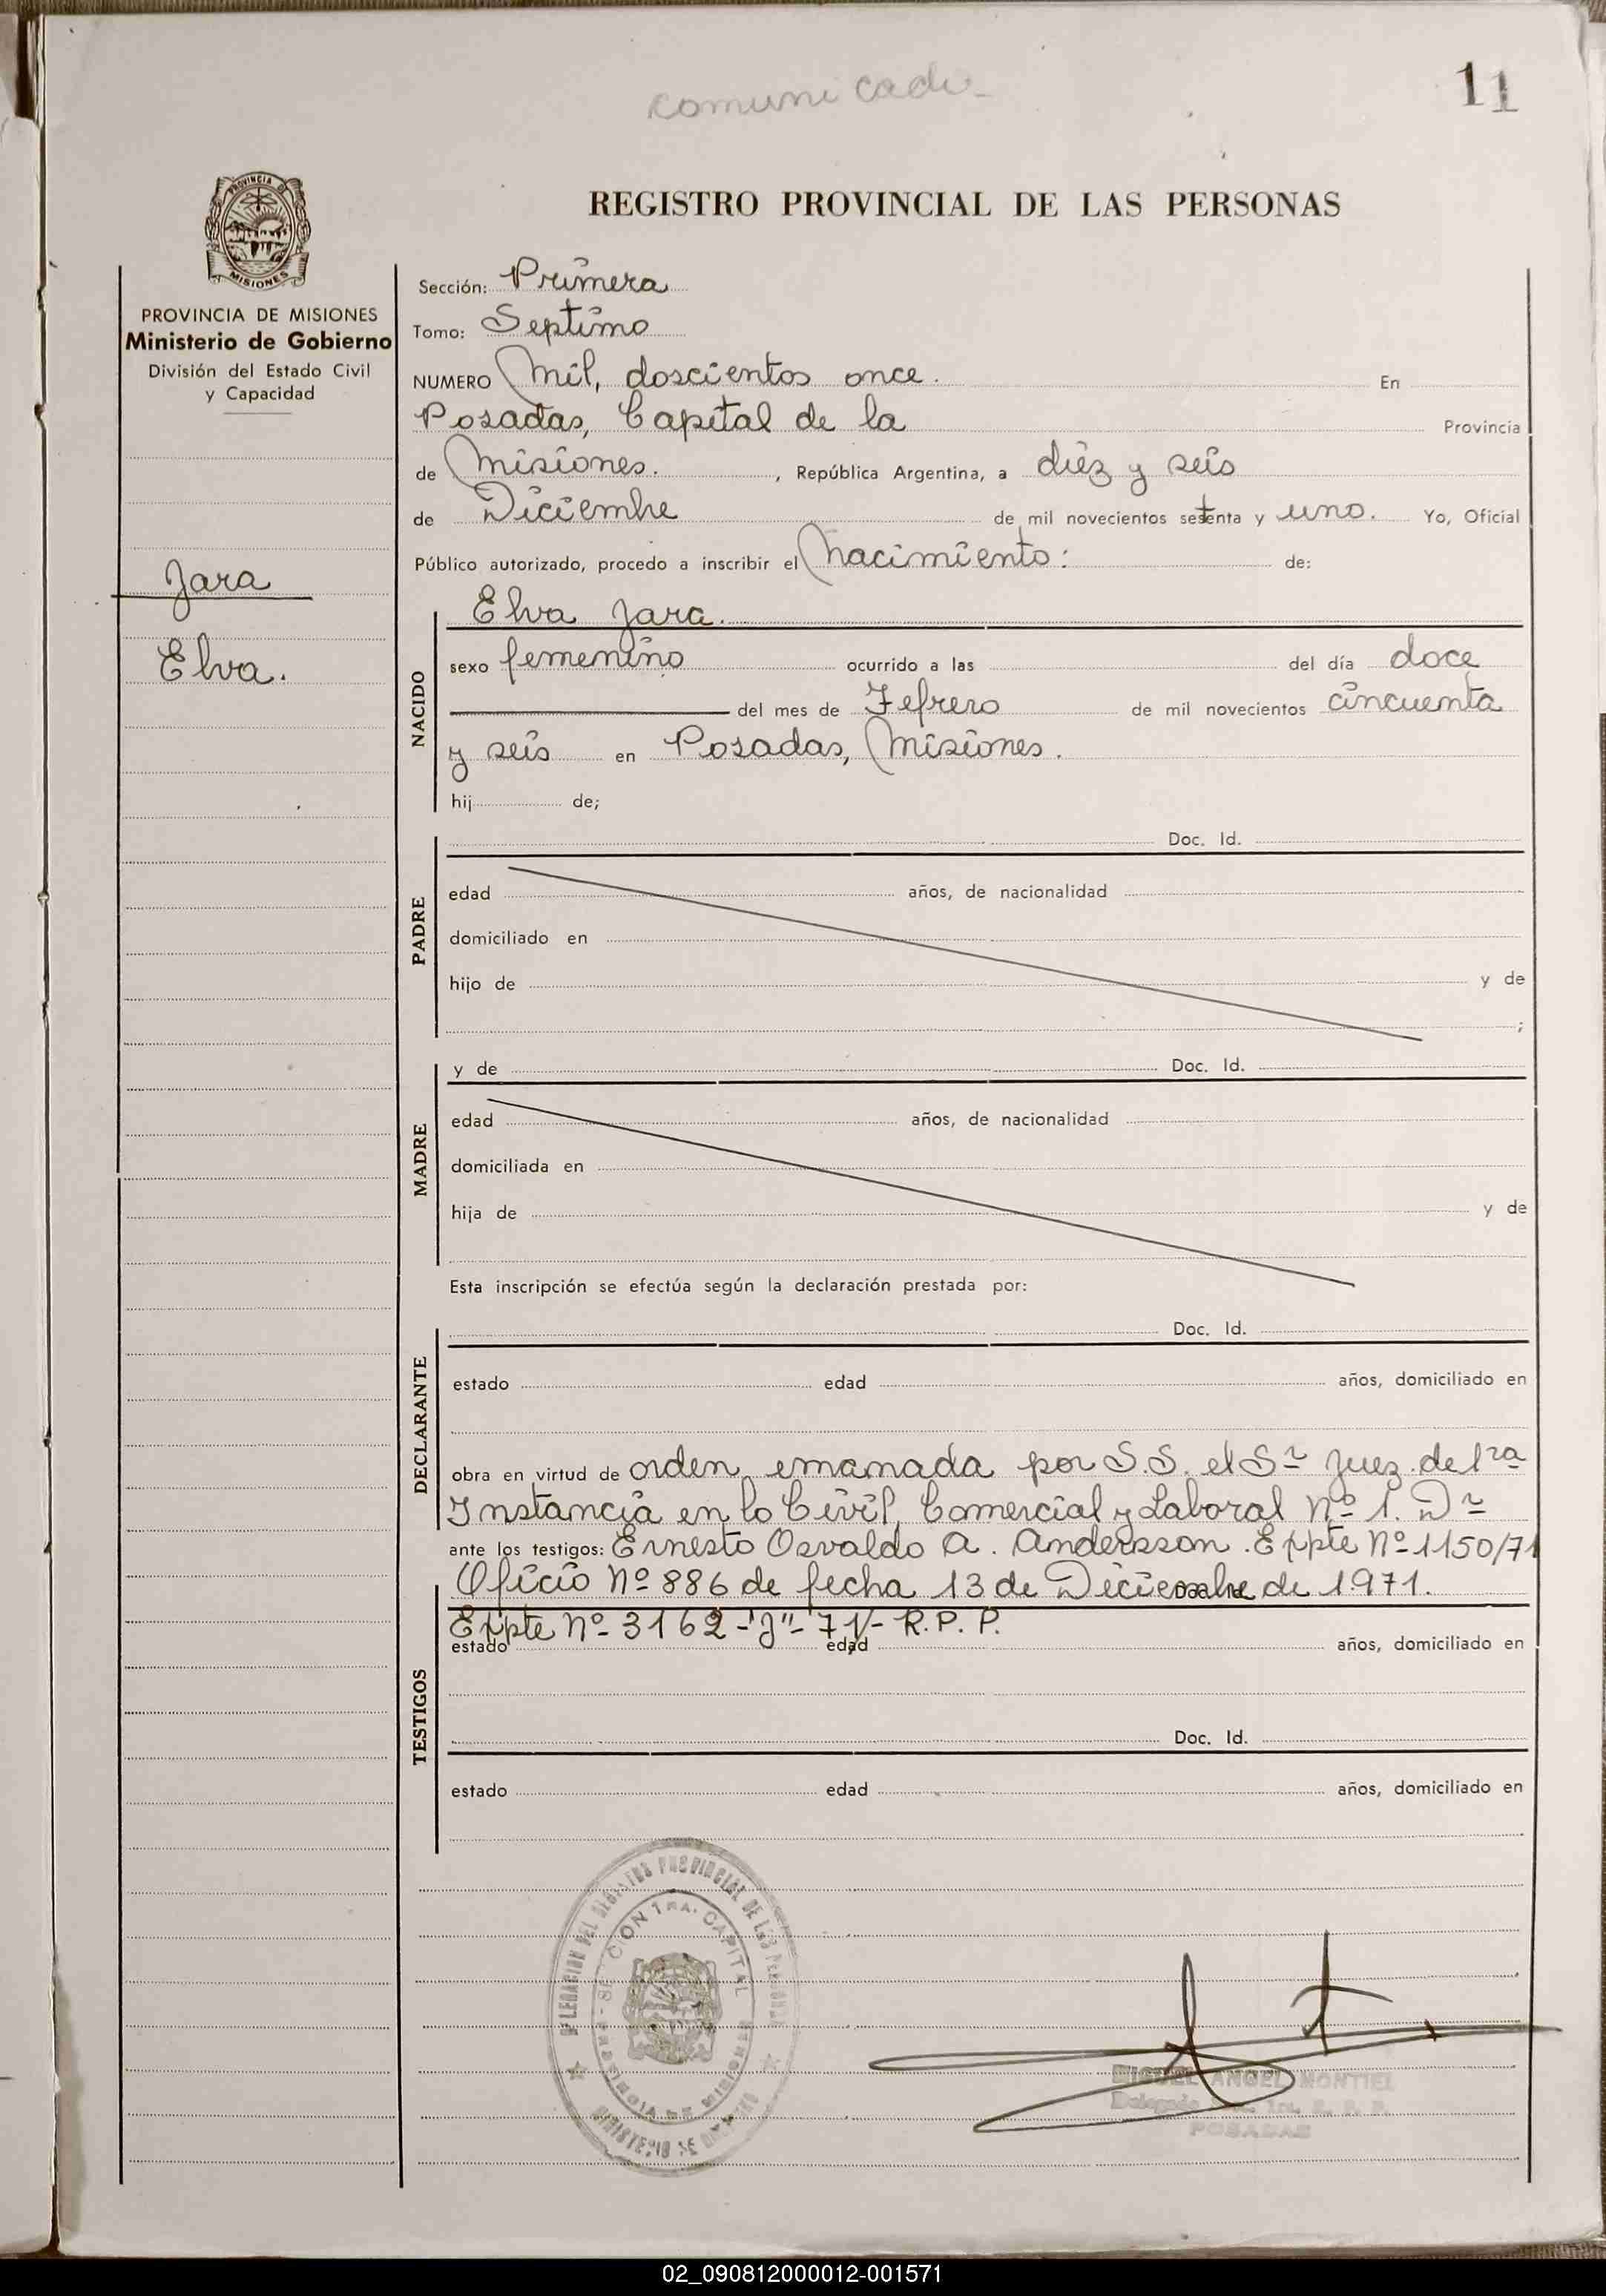 comunicado-
11
PROVINCIA DE
MISIONES
REGISTRO PROVINCIAL DE LAS PERSONAS
PROVINCIA DE MISIONES
Ministerio de Gobierno
División del Estado Civil
y Capacidad
Jara
Elva.
Sección: Primera
Tomo: Septimo
NUMERO Mil, doscientos once. En
Posadas, Capital de la Provincia
de Misiones. , República Argentina, a diéz y seis
de Diciembre de mil novecientos setenta y uno. Yo, Oficial
Público autorizado, procedo a inscribir el Nacimiento: de:
NACIDO
Elva Jara.
sexo femenino ocurrido a las del día doce
del mes de Febrero de mil novecientos cincuenta
y seis en Posadas, Misiones.
hij de;
PADRE
Doc. Id.
edad años, de nacionalidad
domiciliado en
hijo de y de
;
MADRE
y de Doc. Id.
edad años, de nacionalidad
domiciliada en
hija de y de
Esta inscripción se efectúa según la declaración prestada por:
DECLARANTE
Doc. Id.
estado edad años, domiciliado en
obra en virtud de orden emanada por S.S. el Sr Juez de 1ra
Instancia en lo Civil, Comercial y Laboral Nº 1. Dr
ante los testigos: Ernesto Osvaldo A. Andersson. Expte Nº 1150/71
Oficio Nº 886 de fecha 13 de Diciembre de 1971.
TESTIGOS
Expte Nº 3162-"J"-71/- R.P.P.
estado edad años, domiciliado en
Doc. Id.
estado edad años, domiciliado en
DELEGACION DEL REGISTRO PROVINCIAL DE LAS PERSONAS
SECCION 1RA. CAPITAL
PROVINCIA DE MISIONES
MINISTERIO DE GOBIERNO
MIGUEL ANGEL MONTIEL
Delegado 1ra. R. P. P.
POSADAS
02_090812000012-001571